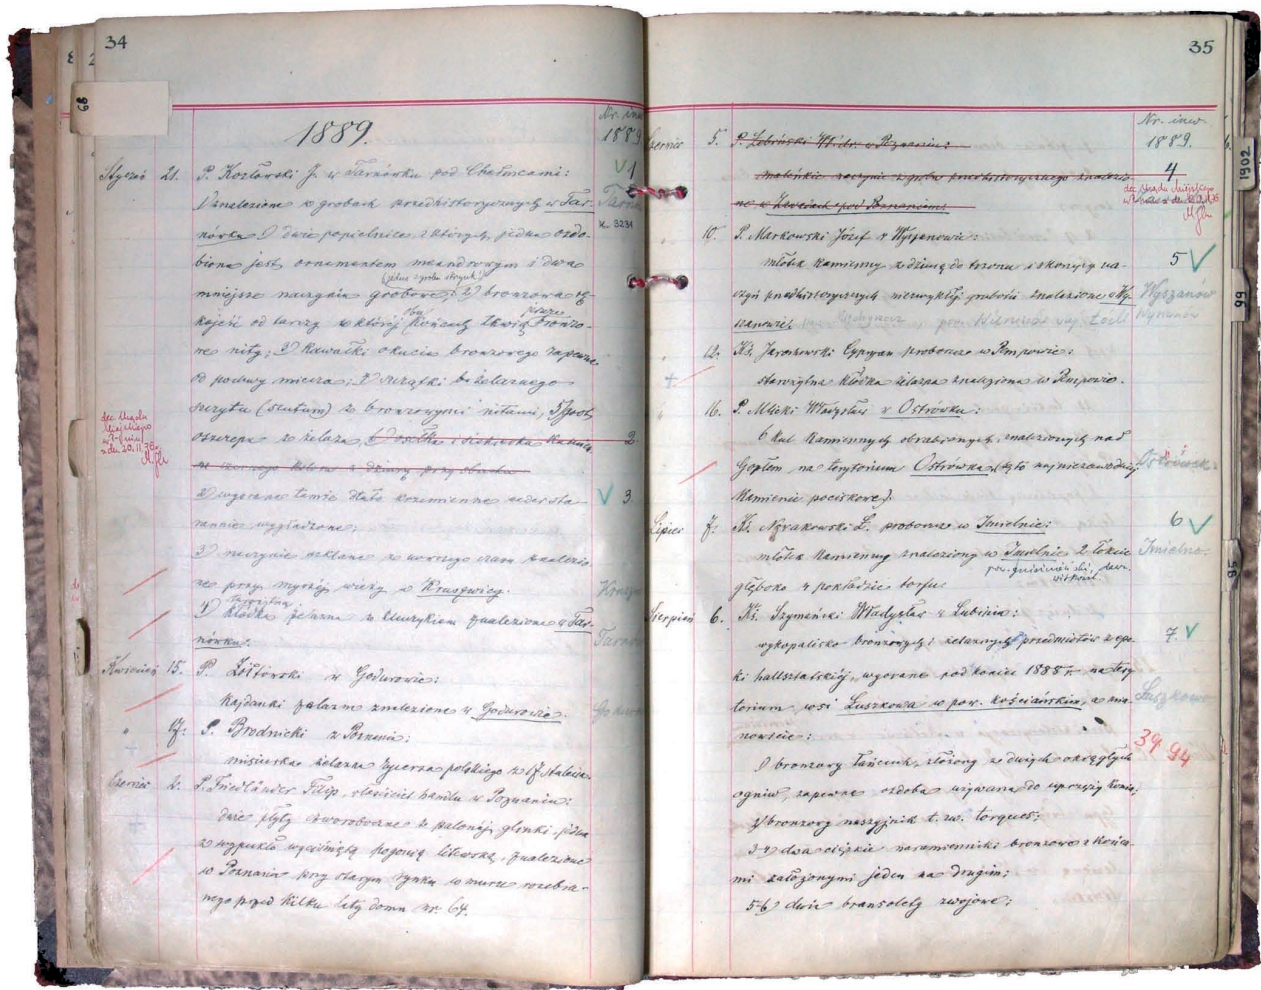 34
1889.
Nr. inw.
1889
Styczeń 21. P. Kozłowski J. w Tarnówku pod Chełmcami:
1
1) znalezione w grobach przedhistorycznych w Tar-
nówku 1) dwie popielnice, z których jedna ozdo-
3231
biona jest ornamentem meandrowym i dwa
mniejsze naczynia grobowe; 2) bronzowa rę-
kojeść od tarczy w której końcach tkwią bronzo-
we nity; 3) kawałki okucia bronzowego zapewne
od pochwy miecza; 4) szczątki żelaznego
szczytu (scutum) z bronzowymi nitami, 5) grot
oszczepu z żelaza, 6) osełka i siekierka kamien-
2
2) wyorane tamże dłuto krzemienne nader sta-
3
rannie wygładzone;
3) naczynie szklane z nowszego czasu znalezio-
ne przy mysiéj wieży w Kruszwicy.
4) kłódka żelazna z kluczykiem znalezione w Tar-
nówku.
Kwiecień 15. P. Żółtowski w Godurowie:
kajdanki żelazne znalezione w Godurowie.
" 17. P. Brodnicki z Poznania:
misiurka żelazna rycerza polskiego z 17 stulecia.
Czerwiec 2. P. Friedländer Filip, właściciel handlu w Poznaniu:
dwie płyty czworoboczne z palonéj glinki, jedna
z wypukło wyciśniętą pogonią litewską, znalezione
w Poznaniu przy starym rynku w murze rozebra-
nego przed kilku laty domu nr. 64.
35
Nr. inw.
1889.
Czerwiec 5. P. Zebroński W. dr. w Poznaniu:
4
maleńkie naczynie z grobu przedhistorycznego znalezio-
ne w Zawadach pod Poznaniem.
10. P. Markowski Józef w Wyszanowie:
młotek kamienny z dziurą do trzonu i skorupy na-
5
czyń przedhistorycznych niezwykłéj grubości znalezione w Wy-
Wyszanów
szanowie.
12. Ks. Jaroszewski Cypryan proboszcz w Pempowie:
starożytna kłódka żelazna znaleziona w Pempowie.
16. P. Mlicki Władysław z Ostrówka:
6 kul kamiennych obrobionych, znalezionych nad
Gopłem na terytorium Ostrówka (są to najniezawodniéj
kamienie pociskowe).
Lipiec 7. Ks. Nożakowski L. proboszcz w Imielnie:
6
młotek kamienny znaleziony w Imielnie 2 łokcie
Imielno
głęboko w pokładzie torfu.
Sierpień 6. Ks. Szymański Władysław w Lubiniu:
7.
wykopalisko bronzowych i żelaznych przedmiotów z epo-
ki hallsztatskiéj, wyorane pod koniec 1888 r. na tery-
torium wsi Łuszkowa w pow. kościańskim, a mia-
Łuszkowo
nowicie:
39 94
1) bronzowy łańcuch, złożony z dwóch okrągłych
ogniw, zapewne ozdoba używana do uprzęży konia;
2) bronzowy naszyjnik t. zw. torques;
3-4) dwa ciężkie naramienniki bronzowe z końca-
mi założonymi jeden na drugim;
5-6) dwie bransolety zwojowe;
68
1902
99